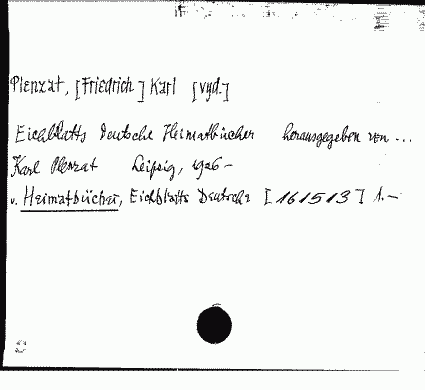 Plenzat, [Friedrich] Karl [vyd.]
Eichblatts Deutsche Heimatbücher herausgegeben von ...
Karl Plenzat Leipzig, 1926 –
v. Heimatbücher, Eichblatts Deutsche [161513] 1.–